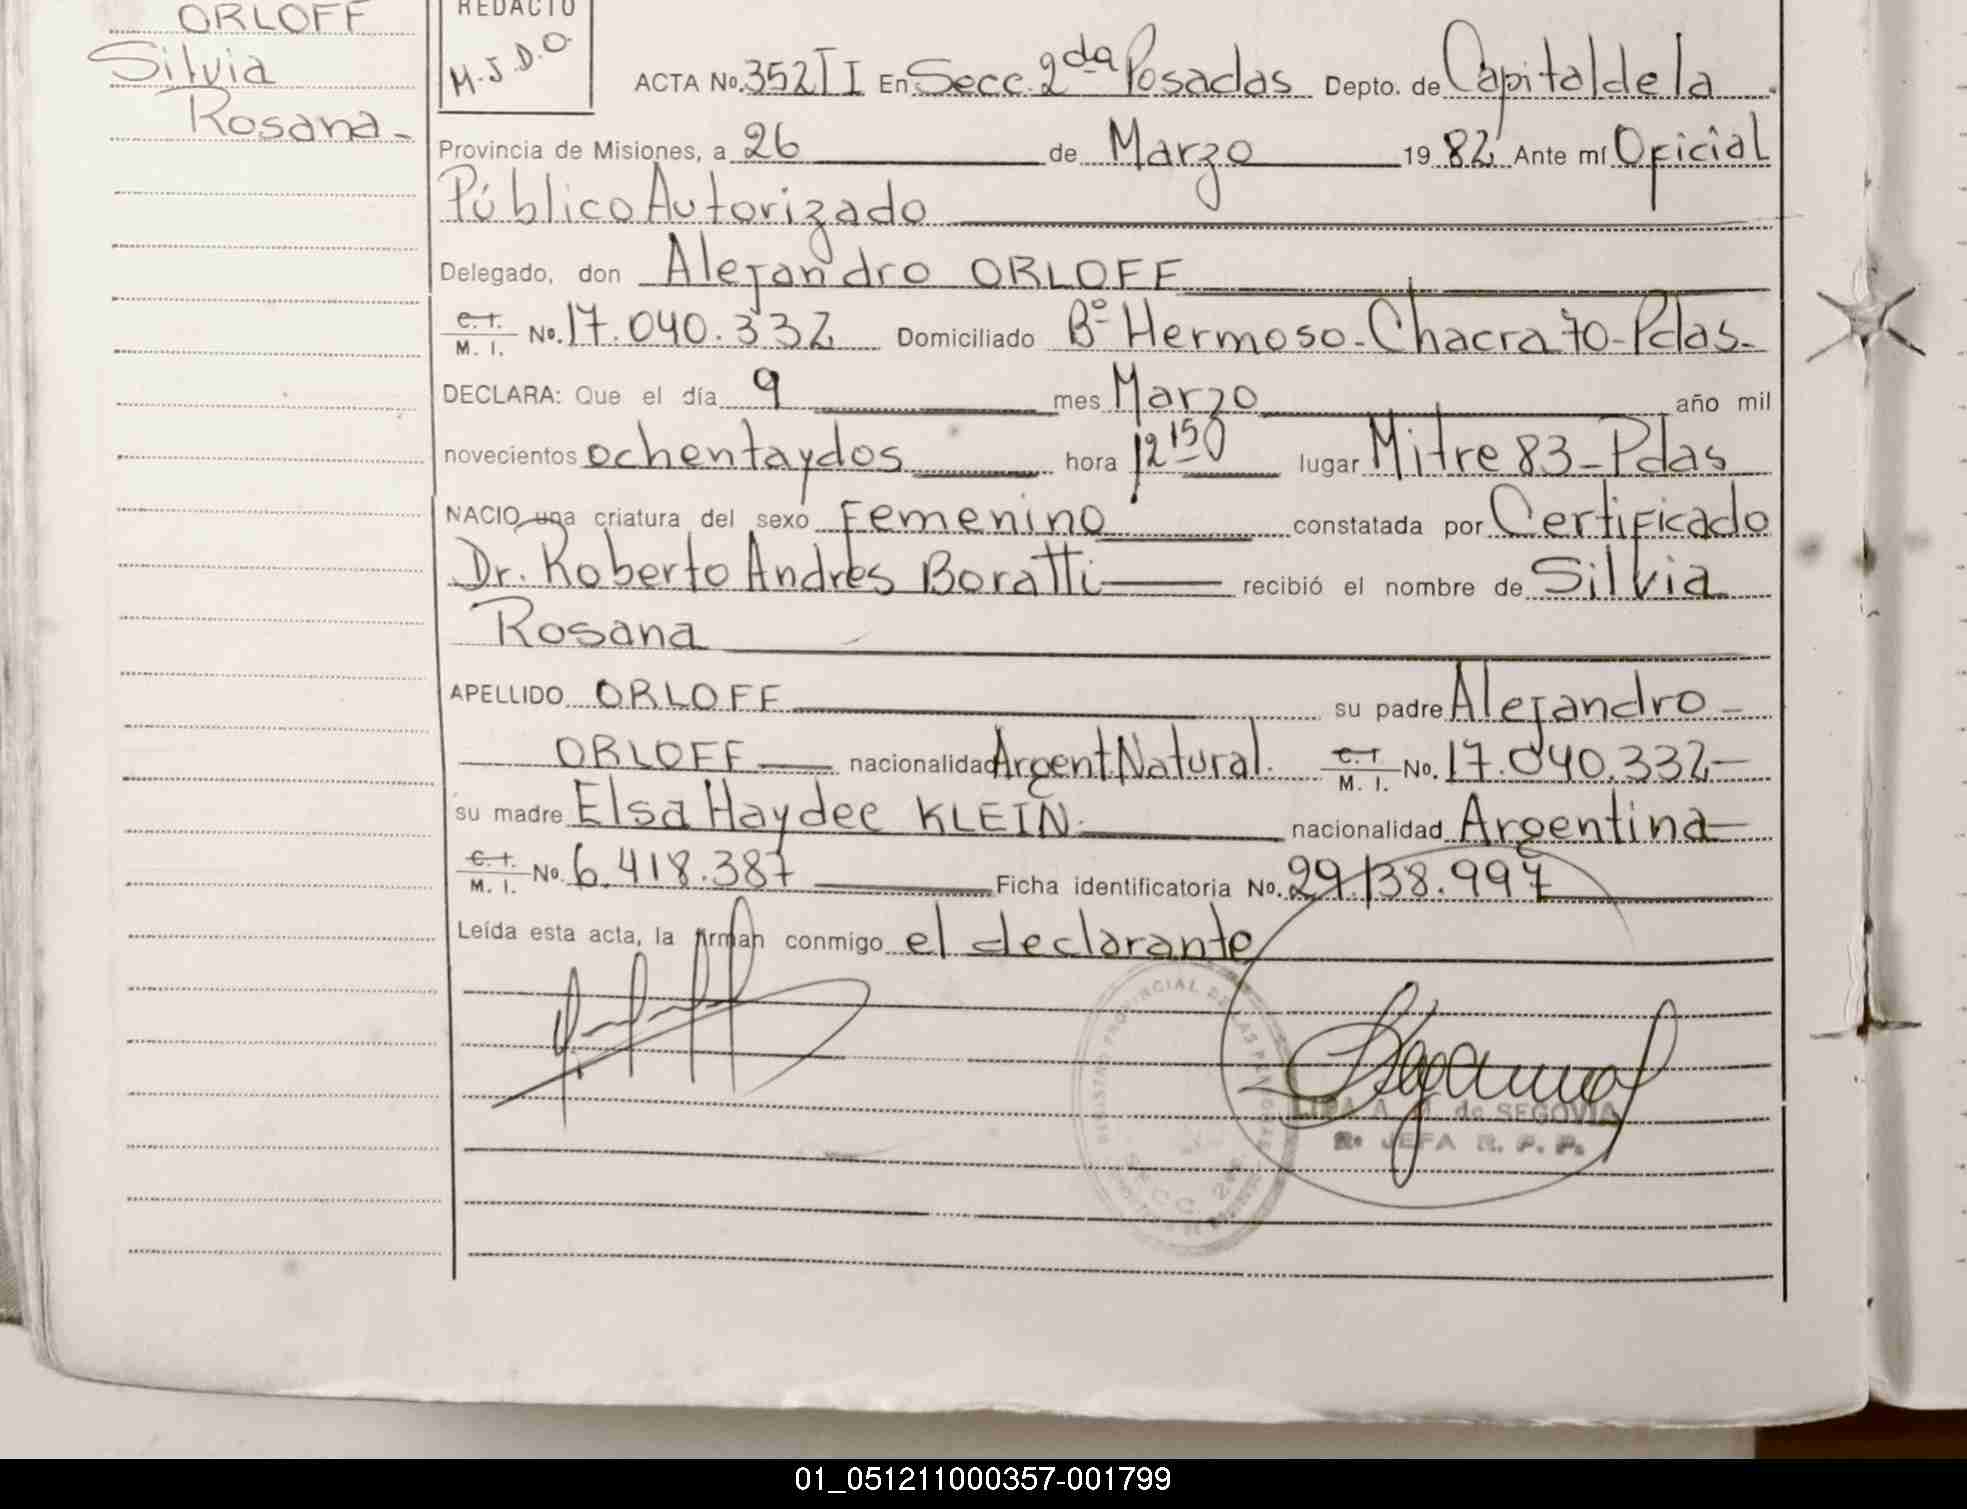 ORLOFF
Silvia
Rosana-
REDACTO
M.J.D.O.
ACTA No. 352 TI En Secc. 2da Posadas Depto. de Capital de la
Provincia de Misiones, a 26 de Marzo 19 82 Ante mí Oficial
Público Autorizado
Delegado, don Alejandro ORLOFF
C. I. M. I. No. 17.040.332 Domiciliado Bº Hermoso - Chacra 70 - Pdas.
DECLARA: Que el día 9 mes Marzo año mil
novecientos ochenta y dos hora 12 150 lugar Mitre 83 - Pdas
NACIO una criatura del sexo Femenino constatada por Certificado
Dr. Roberto Andrés Boratti recibió el nombre de Silvia
Rosana
APELLIDO ORLOFF su padre Alejandro -
ORLOFF nacionalidad Argent. Natural. C. I. M. I. No. 17.040.332 -
su madre Elsa Haydee KLEIN. nacionalidad Argentina -
C. I. M. I. No. 6.418.387 Ficha identificatoria No. 29.138.997
Leída esta acta, la firman conmigo el declarante
REGISTRO PROVINCIAL DE LAS PERSONAS
SECC. 2da
A. M. de SEGOVIA
JEFA R. P. P.
01_051211000357-001799